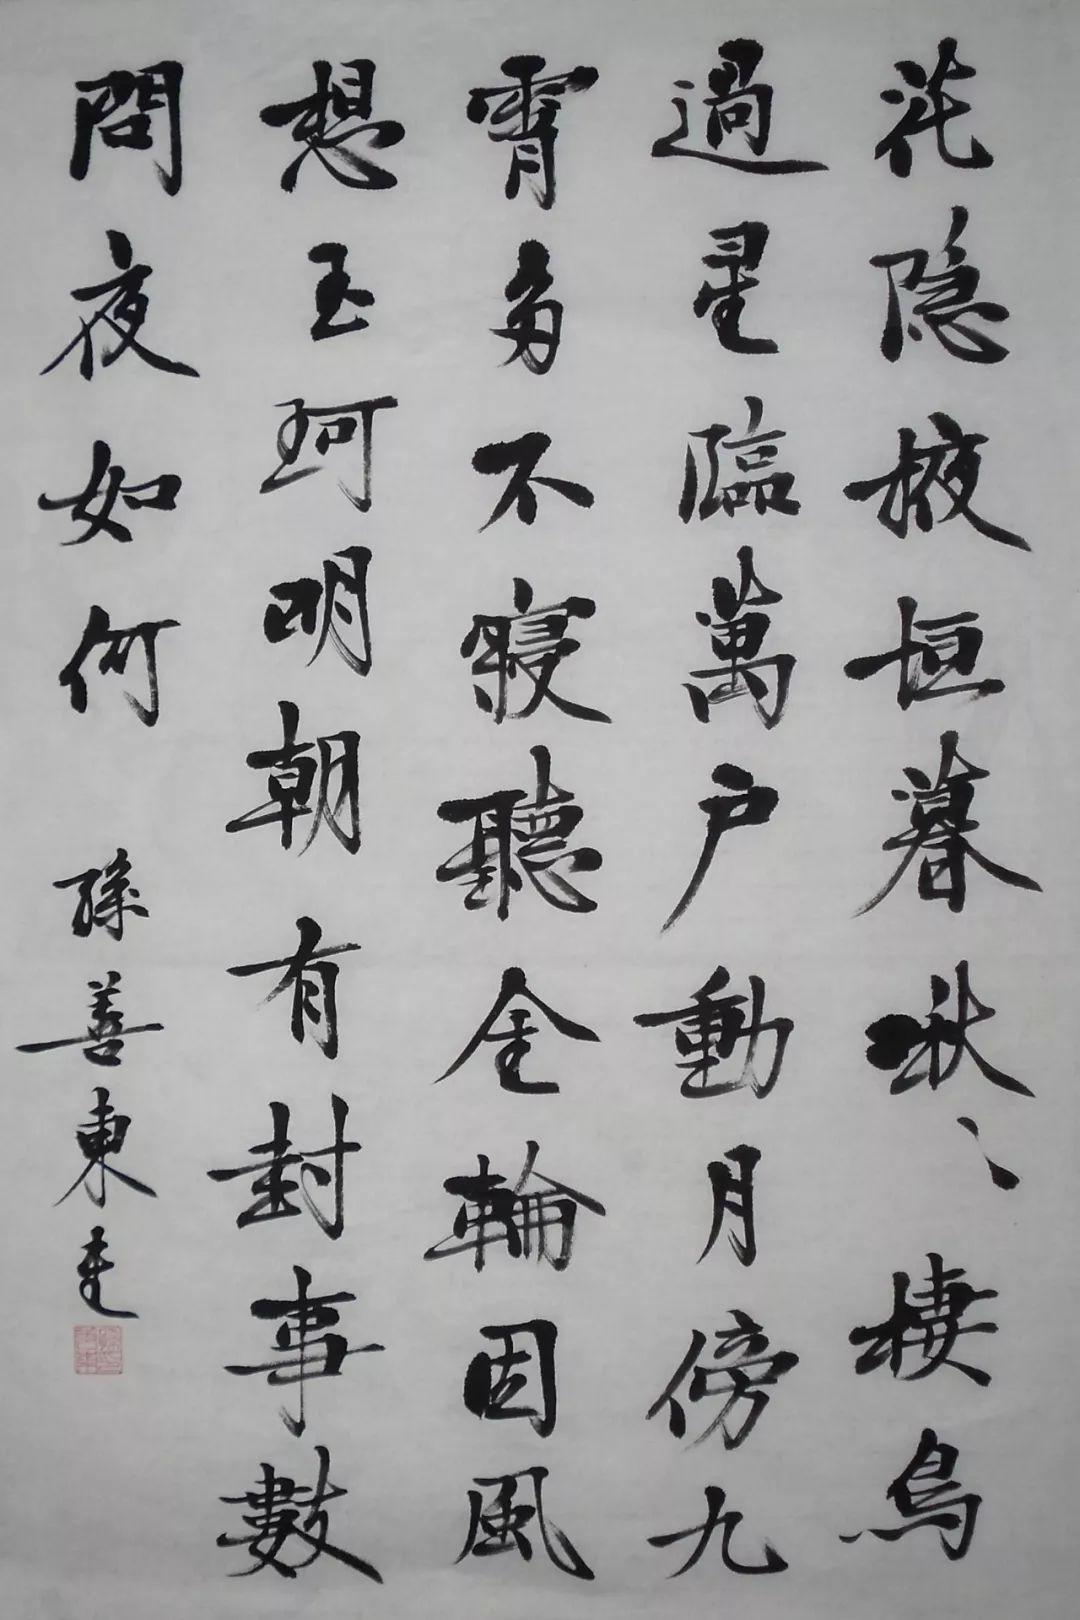 花隐掖垣暮啾〻棲鳥
過星臨萬户動月傍九
霄多不寢聽金輪因風
想玉珂明朝有封事數
問夜如何 孫善東書